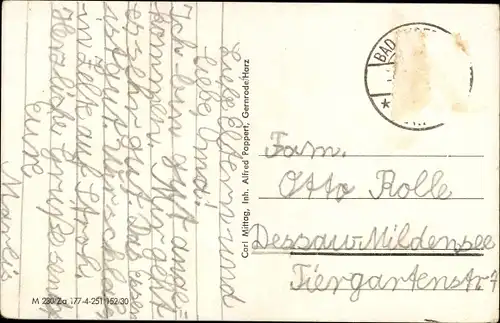 Liebe Eltern und
liebe Oma!
Ich bin gut ange-
kommen. Mir geht
es sehr gut. Das Essen
ist gut. Wir schlafen
in Zelte auf Stroh.
Herzliche Grüße sendet
Eure
Marlis
Carl Mittag, Inh. Alfred Poppert, Gernrode/Harz
M 230/Za 177-4-251 152 30
BAD
Fam.
Otto Rolle
Dessau-Mildensee
Tiergartenstr. 7